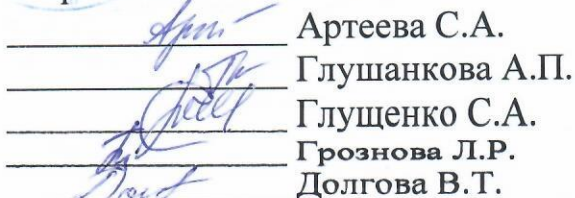 Артеева С.А.
Глушанкова А.П.
Глущенко С.А.
Грознова Л.Р.
Долгова В.Т.